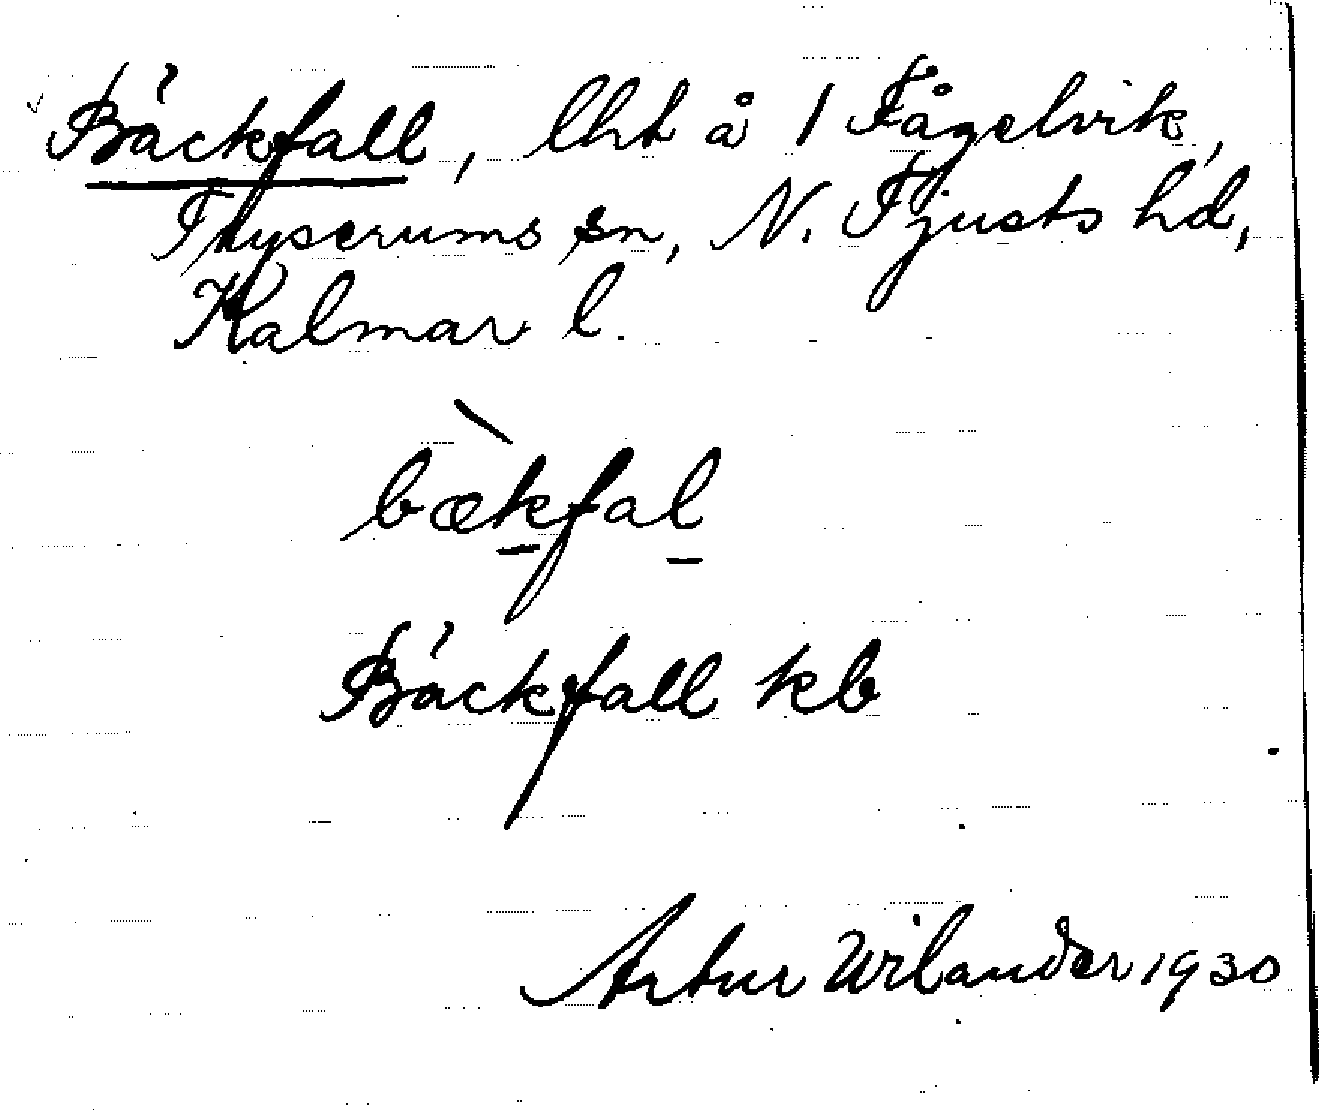 Bäckfall, lht å 1 Fågelvik,
Thyserums sn, N. Tjusts hd,
Kalmar l.
bækfal
Bäckfall kb
Artur Wilander 1930